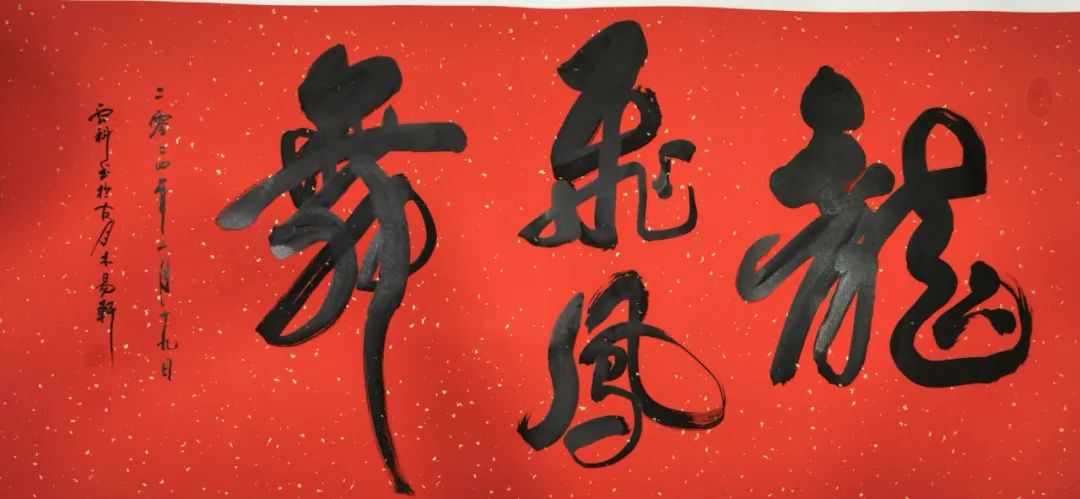 龍
飛鳳
舞
二零二四年二月十九日
雲科書於古月木易軒